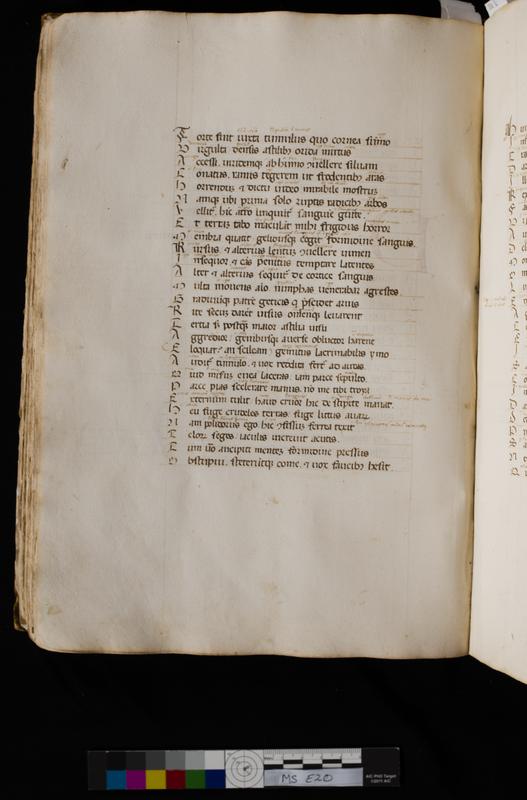 Forte fuit iuxta tumulus quo cornea sumo
Virgulta densis astilib; orida mirtus
Accessi. viridemq; ab humo ꝯvellere siluam
Conatus. ramis tegerem ut frōdentib; aras
Horrendū ⁊ dictu video mirabile monstrū
Namq; ubi prima solo ruptis radicib; arbos
Vellit͛. hic atro linquūt͛ sanguīe gutte
Et terrā tabo maculāt mihi frigidus horror
Membra quatit gelidusq; coit formidine sanguis
Rursus. ⁊ alterius lentū ꝯvellere uimen
Insequor ⁊ cās penitus temptare latentes
Alter ⁊ alterius sequit͛ de cortice sanguis
Multa mouens aīo. nimphas uenerabar agrestes
Gradiuūq; patrē geticis q̄ presidet aruis
Rite secūdarēt uisus omenq; leuarent
Tertia s; postq̄ maior astilia uisu
Aggredior. genibusq; auerse obluctor harene
Eloquar. an scileam. gemitus lacrimabilis ymo
Audit͛ tumulo. ⁊ uox reddita fert͛ ad auras
Quid miserū enea laceras. iam parce sepulto
Parce pias scelerare manus. nō me tibi troya
Externum tulit. haud cruor hic de stipite manat.
Heu fuge crudeles terras. fuge littus auarū
Nam polidorus ego. hic ꝯfixū ferrea texit
Telorū seges. iaculis increuit acutis.
Tum uō ancipiti mentē formidine pressus
Obstipui. steterūtq; come. ⁊ uox faucib; hesit.
MS E20